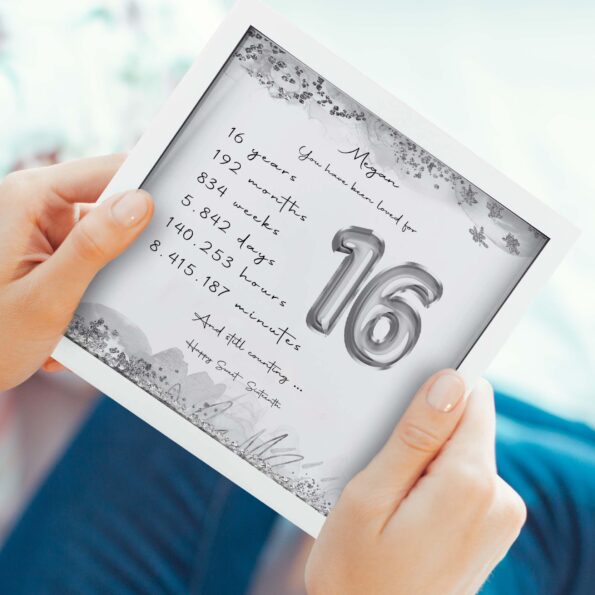 Megan
You have been loved for
16 years
192 months
834 weeks
5.842 days
140.253 hours
8.415.187 minutes
16
And still counting ...
Happy Sweet Sixteenth